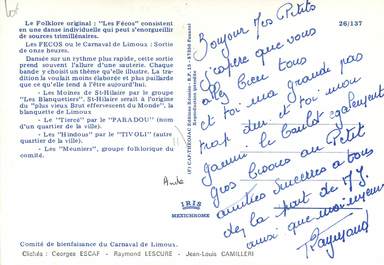 Le Folklore original : "Les Fécos" consistent
en une danse individuelle qui peut s'enorgueillir
de sources trimillénaires.
Les FECOS ou le Carnaval de Limoux : Sortie
de onze heures.
Dansée sur un rythme plus rapide, cette sortie
prend souvent l'allure d'une sauterie. Chaque
bande y choisit un thème qu'elle illustre. La tra-
dition la voulait moins élaborée et plus paillarde
que ce qu'elle tend à l'être aujourd'hui.
- Les Moines de St-Hilaire par le groupe
"Les Blanquetiers". St-Hilaire serait à l'origine
du "plus vieux Brut effervescent du Monde", la
blanquette de Limoux.
- Le "Tiercé" par le "PARADOU" (nom
d'un quartier de la ville).
- Les "Hindous" par le "TIVOLI" (autre
quartier de la ville).
- Les "Meuniers", groupe folklorique du
comité.
Aude
Comité de bienfaisance du Carnaval de Limoux.
Clichés : Georges ESCAF - Raymond LESCURE - Jean-Louis CAMILLERI
Reproduction interdite
IRIS
MEXICHROME
26/137
Bonjour Mes Petits
j'espère que vous
allez bien tous
et toi ma grande pas
trop dur et toi mon
le boulot également
gros bisous au Petit
amitiés sincères à tous
de la part de M.J.
ainsi que moi-même
Raymond